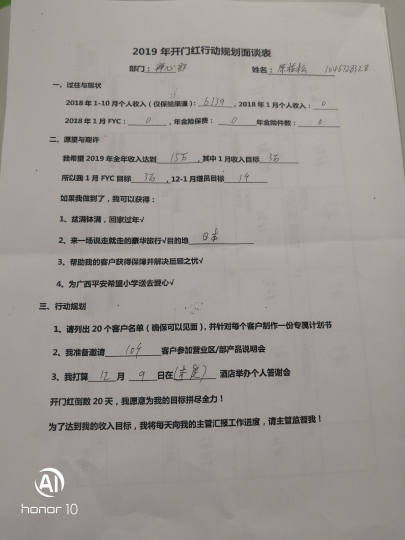 2019 年开门红行动规划面谈表
部门: 禅心部 姓名:
一、过往与现状
2018 年 1-10 月个人收入（仅保险渠道）: 6139 , 2018 年 1 月个人收入: 0
2018 年 1 月 FYC: 0 , 年金险保费: 0 年金险件数: 0
二、愿望与期许
我希望 2019 年全年收入达到 15万 , 其中 1 月收入目标 3万
所以我 1 月 FYC 目标 3万 , 12-1 月增员目标 1个
如果我做到了，我可以获得:
1、盆满钵满，回家过年√
2、来一场说走就走的豪华旅行√目的地 日本
3、帮助我的客户获得保障并解决后顾之忧√
4、为广西平安希望小学送去爱心√
三、行动规划
1、请列出 20 个客户名单（确保可以见面），并针对每个客户制作一份专属计划书
2、我准备邀请 10个 客户参加营业区/部产品说明会
3、我打算 12 月 9 日在 酒店举办个人答谢会
开门红倒数 20 天，我愿意为我的目标拼尽全力！
为了达到我的收入目标，我将每天向我的主管汇报工作进度，请主管监督我！
AI
honor 10